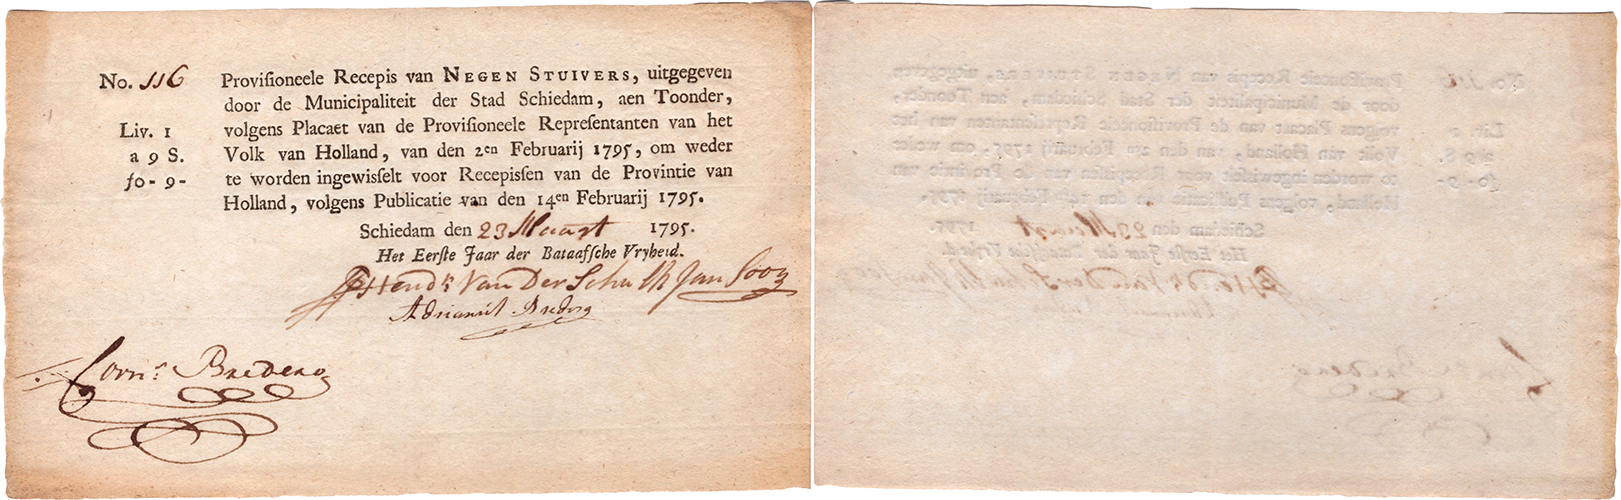 No. 116
Liv. 1
a 9 S.
fo - 9 -
Provisioneele Recepis van NEGEN STUIVERS, uitgegeven
door de Municipaliteit der Stad Schiedam, aen Toonder,
volgens Placaet van de Provisioneele Representanten van het
Volk van Holland, van den 2en Februarij 1795, om weder
te worden ingewisselt voor Recepissen van de Provintie van
Holland, volgens Publicatie van den 14en Februarij 1795.
Schiedam den 23 Maart 1795.
Het Eerste Jaar der Bataafsche Vryheid.
Hendk Van Der Schalk Jan Zoon
Corns Bredero